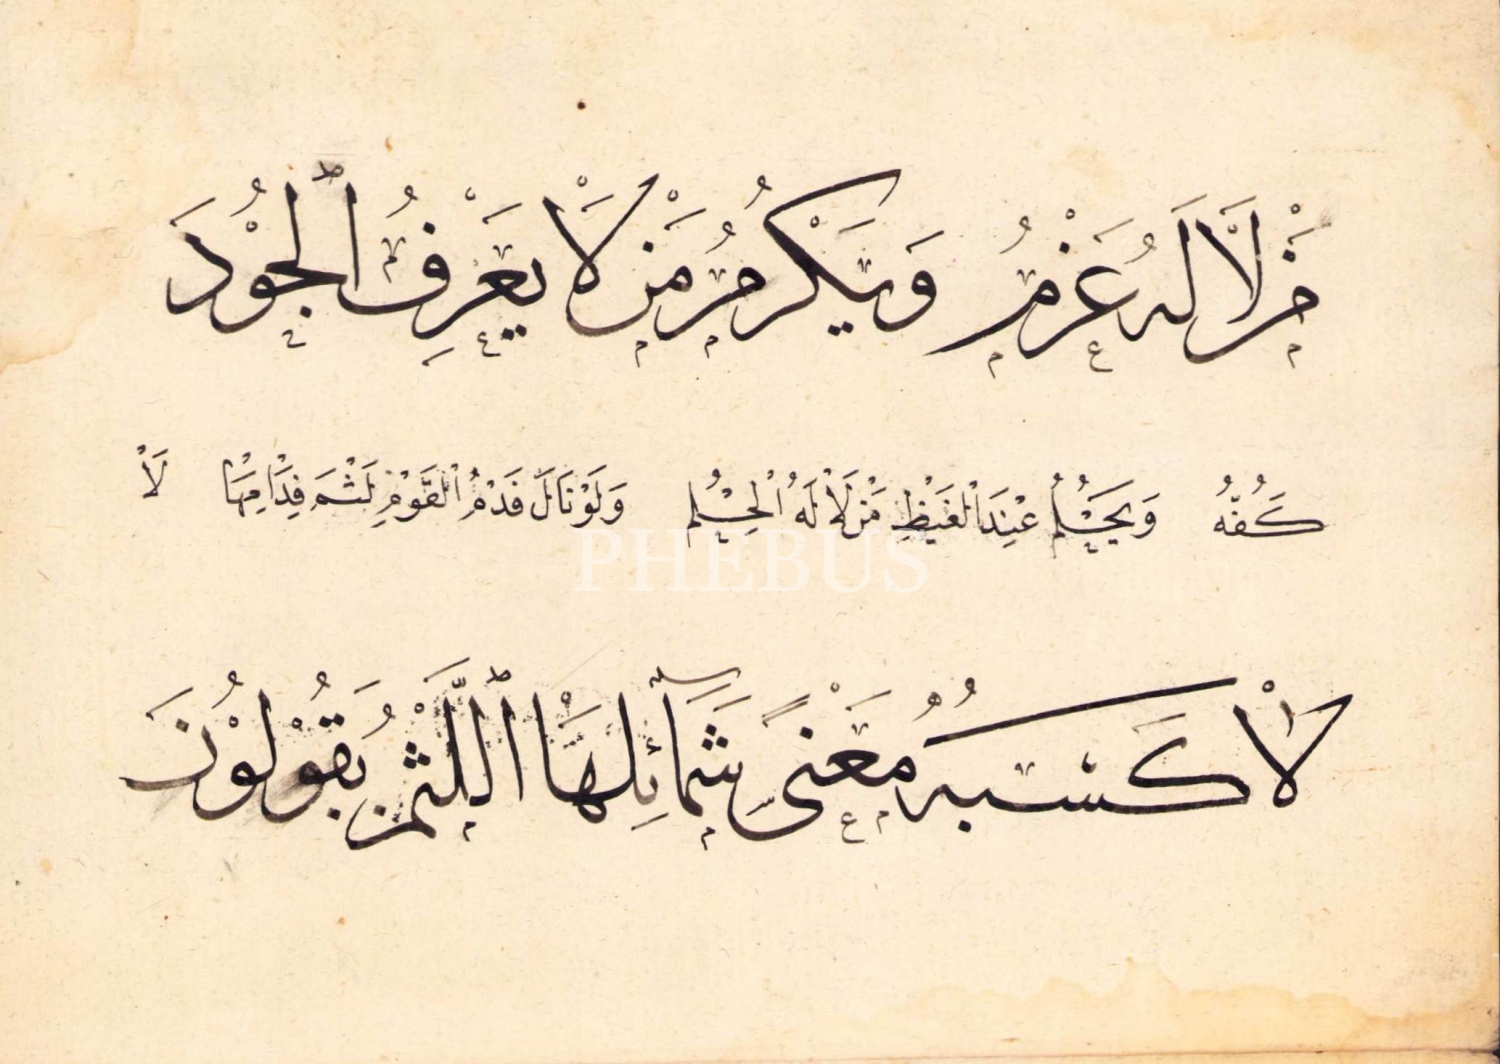 مَنْ لَا لَهُ عَزْمُ وَيَكْرُمُ مَنْ لَا يَعْرِفُ الْجُودَ
كَفُّهُ وَيَحْلُمُ عِنْدَ الْغَيْظِ مَنْ لَا لَهُ الْحِلْمُ وَلَوْ نَالَ فَدْمُ الْقَوْمِ لَثْمَ فِدَامِهَا لَا
لَأَكْسَبَهُ مَعْنَى شَمَائِلِهَا اللَّثْمُ يَقُولُونَ
PHEBUS